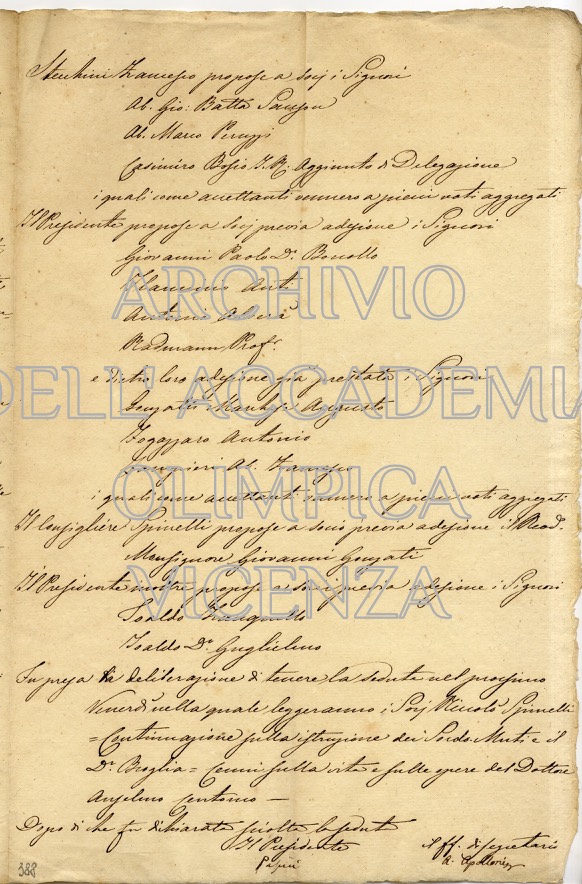 Stecchini Francesco propose a socj i Signori
Ab. Gio: Batta
Ab. Marco Peruzzi
Casimiro Bosio I. R. Aggiunto di Delegazione
i quali come accettanti vennero a pieni voti aggregati
Il Presidente propose a Socj previa adesione i Signori
Giovanni Paolo Dr. Boccollo
ARCHIVIO
Antonio
Radmann Prof.
e dietro loro adesione già prestata i Signori
DELL'ACCADEMIA
Gonzati Marchese Augusto
Fogazzaro Antonio
Ab. Francesco
OLIMPICA
i quali come accettanti vennero a pieni voti aggregati
Il Consigliere Spinelli propose a socio previa adesione il Revd.
Monsignore Giovanni Gonzati
Il Presidente inoltre propose a Socj previa adesione i Signori
VICENZA
Isaldo
Isaldo Dr. Guglielmo
Fu presa deliberazione di tenere la seduta nel prossimo
Venerdì nella quale leggeranno i Socj Niccolò Spinelli
= Continuazione sulla istruzione dei Sordo Muti e il
Dr. Broglia = Cenni sulla vita e sulle opere del Dottore
Anselmo
Dopo di che fu dichiarata sciolta la seduta
Il Presidente
Il ff. di segretario
388